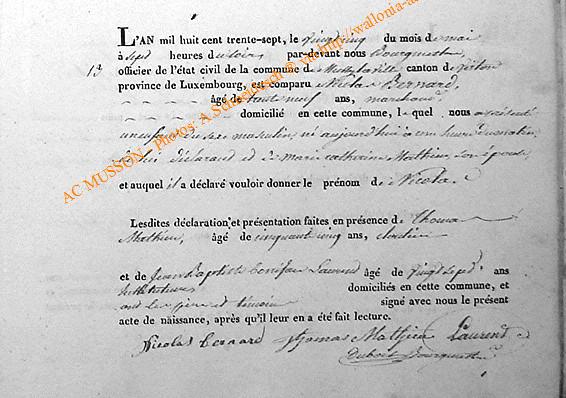 L'AN mil huit cent trente-sept, le vingt cinq du mois de mai
à sept heures du soir, par-devant nous Bourguet
13 officier de l'état civil de la commune de Mussy-la-ville canton de Virton
province de Luxembourg, est comparu Nicolas Bernard,
âgé de trente neuf ans, marchand
domicilié en cette commune, lequel nous a présenté
un enfant du sexe masculin, né aujourd'hui à une heure du matin
de lui déclarant et de marie catherine Mathieu, son épouse
et auquel il a déclaré vouloir donner le prénom de Nicolas
Lesdites déclaration et présentation faites en présence de Thomas
Mathieu, âgé de cinquante cinq ans,
et de Jean Baptiste Laurent âgé de vingt sept ans
Instituteur domiciliés en cette commune, et
ont les père et témoins signé avec nous le présent
acte de naissance, après qu'il leur en a été fait lecture.
Nicolas Bernard Thomas Mathieu Laurent
AC MUSSON - Photos: A.Scheuren © via http://wallonia-as